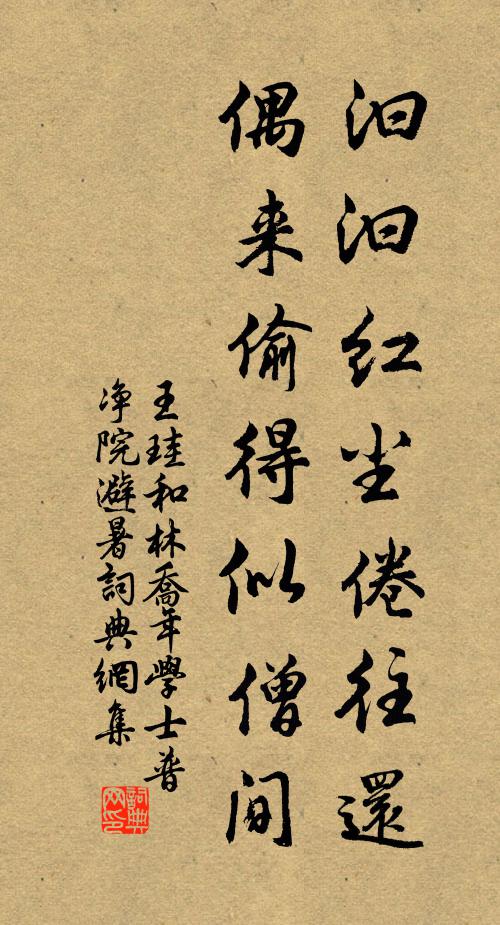 汩汩红尘倦往還
偶来偷得似僧间
王珪和林喬年學士普
净院避暑詞典網集
詞典网印